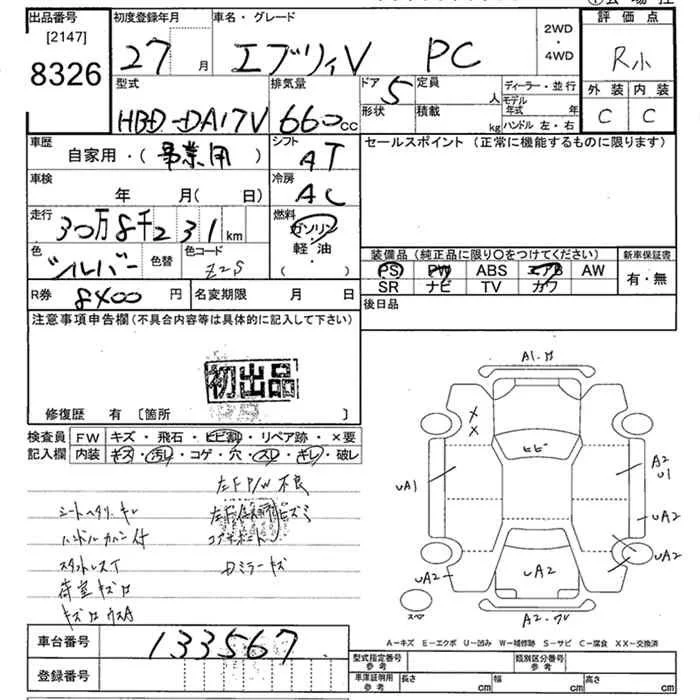 出品番号
[2147]
8326
初度登録年月
27 月
車名・グレード
エブリィV PC
2WD
・
4WD
評価点
R小
外装 内装
C C
型式
HBD-DA17V
排気量
660cc
ドア
5
形状
定員
人
積載
kg
ディーラー・並行
モデル年式 年
ハンドル 左・右
車歴
自家用・(事業用)
シフト
AT
セールスポイント (正常に機能するものに限ります)
車検
年 月(日)
冷房
AC
走行
30万8千231 km
燃料
ガソリン
軽・油
( )
色
シルバー
色替
色コード
Z2S
装備品 (純正品に限り○をつけてください)
PS PW ABS エアB AW
SR ナビ TV カワ
新車保証書
有・無
R券 8400 円
名変期限 月 日
後日品
注意事項申告欄 (不具合内容等は具体的に記入して下さい)
初出品
修復歴 有 [箇所 ]
検査員記入欄
FW キズ・飛石・ヒビ割・リペア跡・×要
内装 キズ・汚レ・コゲ・穴・スレ・キレ・破レ
左F P/W 不良
シートヘタリ キレ
ハンドルカバー付
スタットレスT
荷室キズロ
コアサポート
ミラーキズ
A1
X
X
ヒビ
UA1
A2
U1
UA2
UA2
UA2
UA2
スペア
A2
車台番号 133567
登録番号
A-キズ E-エクボ U-凹み W-補修跡 S-サビ C-腐食 XX-交換済
型式指定番号
参考
類別区分番号
参考
車庫証明用
参考
長さ cm
幅 cm
高さ cm